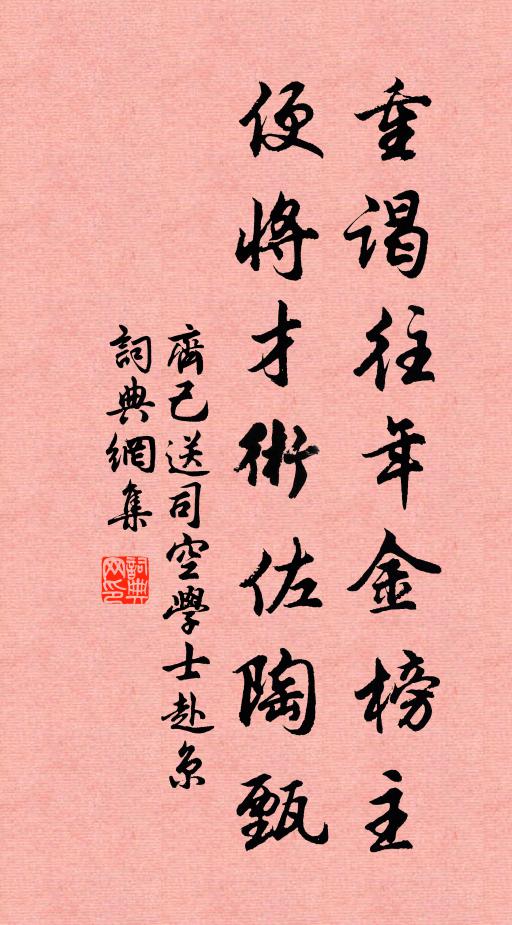 重謁往年金榜主
便將才術佐陶甄
齊己送司空學士赴京
詞典網集
詞典網印